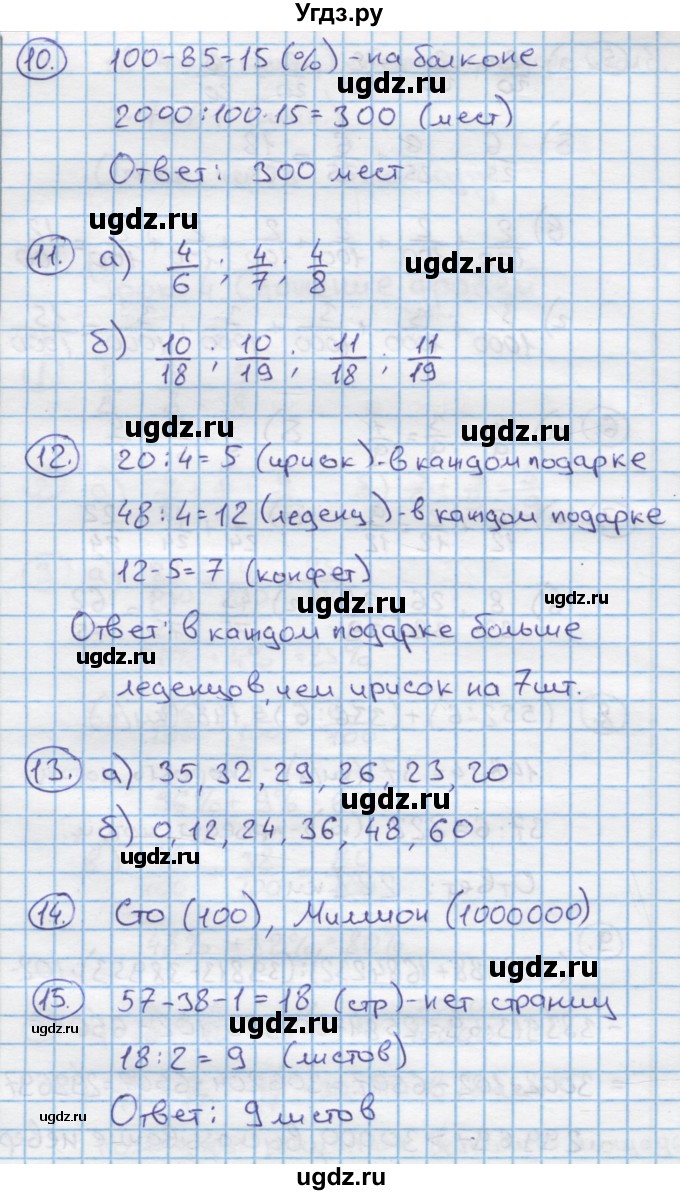 Угдз.ру
10. 100-85=15 (%) - на балконе
ugdz.ru
2000:100·15=300 (мест)
Ответ: 300 мест
ugdz.ru
11. а) 4/6; 4/7; 4/8
ugdz.ru
б) 10/18; 10/19; 11/18; 11/19
ugdz.ru ugdz.ru
12. 20:4=5 (ирисок)-в каждом подарке
48:4=12 (леденц)-в каждом подарке
12-5=7 (конфет)
ugdz.ru ugdz.ru
Ответ: в каждом подарке больше
ugdz.ru
леденцов, чем ирисок на 7шт.
13. а) 35, 32, 29, 26, 23, 20
ugdz.ru
б) 0, 12, 24, 36, 48, 60
ugdz.ru
14. Сто (100), Миллион (1000000)
ugdz.ru
15. 57-38-1=18 (стр)-нет страниц
ugdz.ru ugdz.ru
18:2=9 (листов)
ugdz.ru
Ответ: 9 листов
ugdz.ru